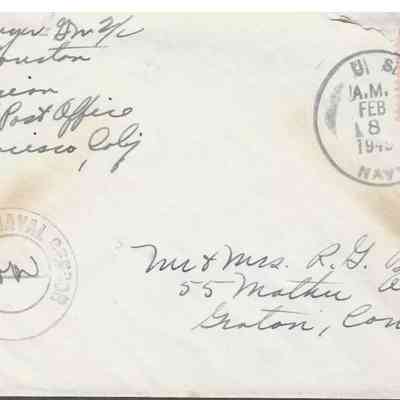 Gm 3/c
ouston
ision
Post Office
ncisco, Calif
U. S.
A.M.
FEB
8
194
NAVY
NAVAL CENSOR
Mr & Mrs. R. G.
55 Mather
Groton, Con